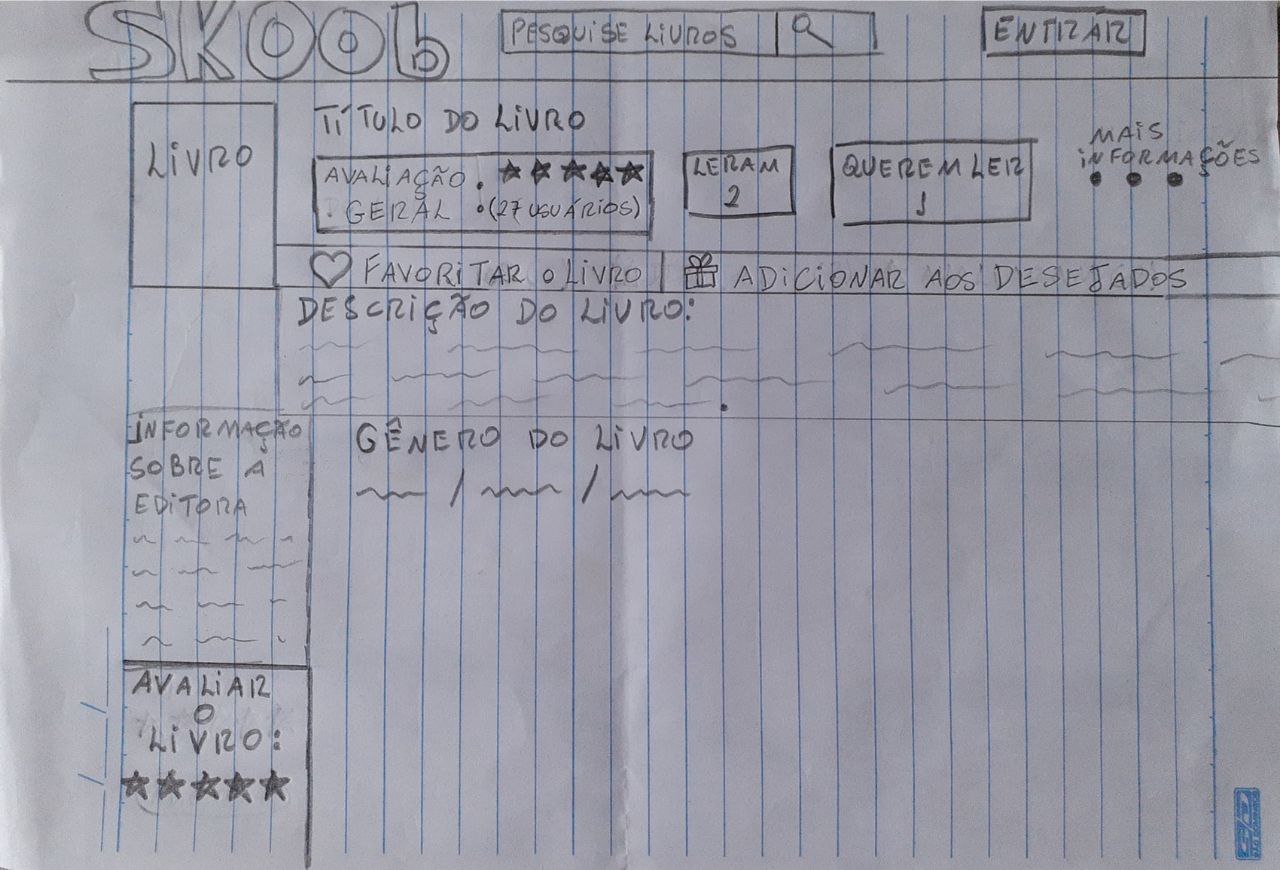 SKOOB
PESQUISE LIVROS
ENTRAR
LIVRO
TÍTULO DO LIVRO
AVALIAÇÃO
GERAL : (27 USUÁRIOS)
LERAM
2
QUEREM LER
1
MAIS
INFORMAÇÕES
FAVORITAR O LIVRO
ADICIONAR AOS DESEJADOS
DESCRIÇÃO DO LIVRO:
INFORMAÇÃO
SOBRE A
EDITORA
GÊNERO DO LIVRO
AVALIAR
O
LIVRO: